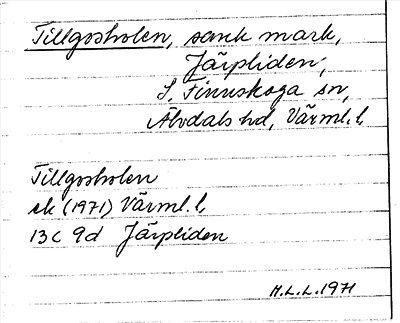 Tillgosholen, sank mark,
Järpliden,
S. Finnskoga sn,
Älvdals hd, Värml. l,
Tillgosholen
ek (1971) Värml. l,
13C 9d Järpliden
H.L.L. 1971